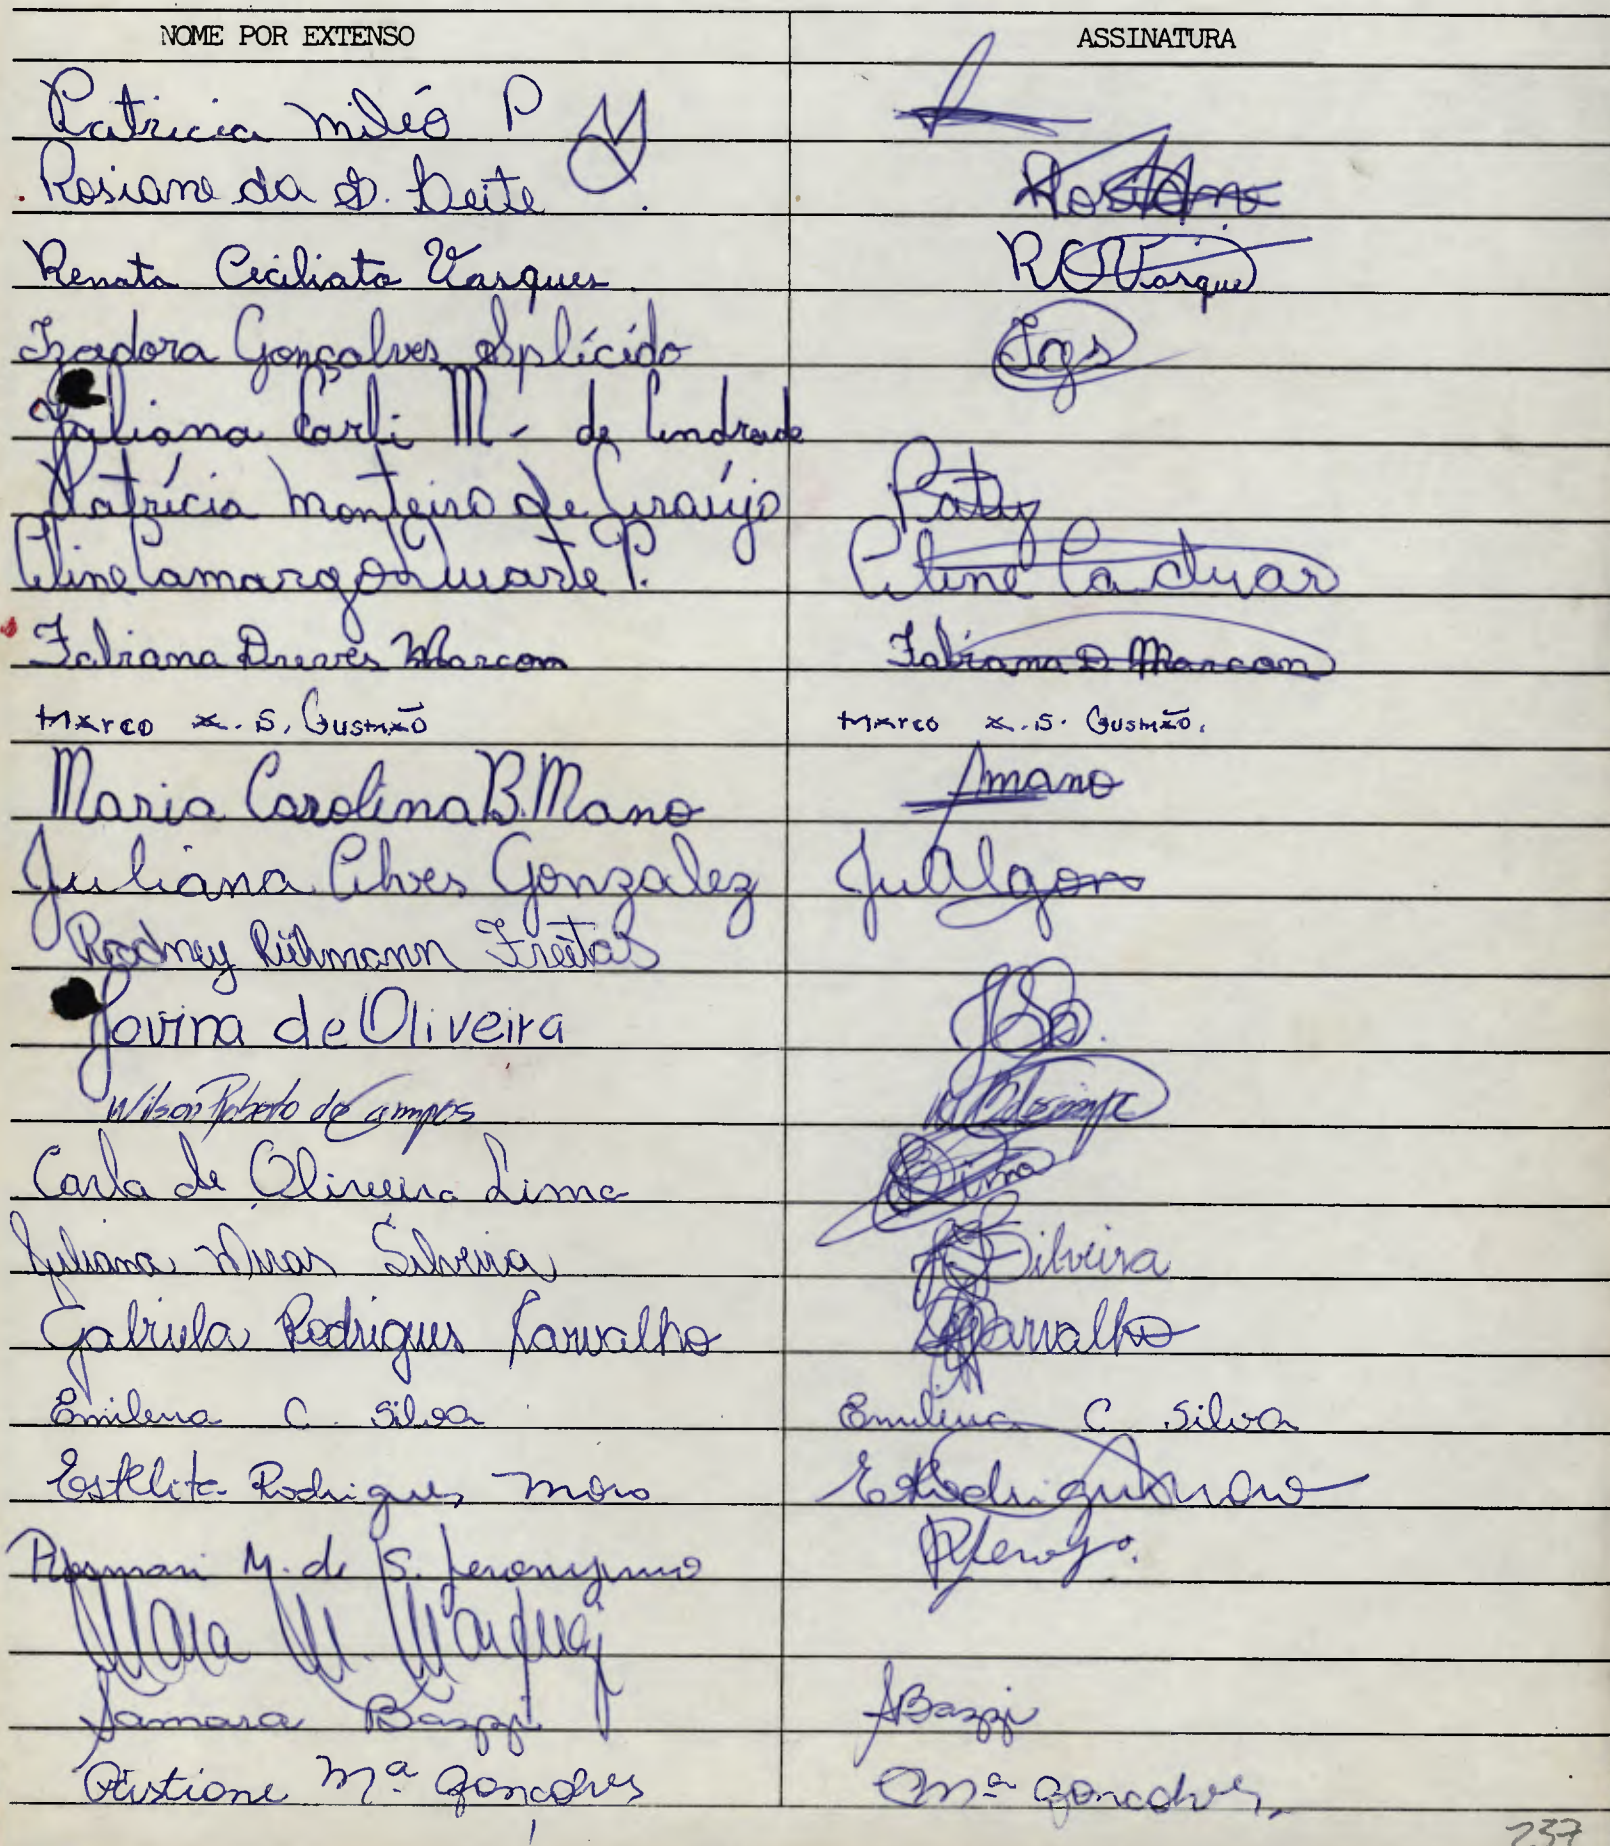 NOME POR EXTENSO ASSINATURA
Patricia Miléo P
Rosiane da S. Leite Rosiane
Renata Ceciliato Vasques RCVasque
Izadora Gonçalves Igs
Juliana Carli M. de Andrade
Patrícia Monteiro de Araújo Paty
Aline Camargo Duarte P. Aline Ca duar
Fabiana Dreves Marcon Fabiana D Marcon
Marco A. S. Gusmão Marco A. S. Gusmão.
Maria Carolina B. Mano Mano
Juliana Alves Gonzalez JuAlgon
Rodney Freitas
Jovina de Oliveira
Wilson Roberto de Campos
Carla de Oliveira Lima Lima
Juliana Silveira Silveira
Gabriela Rodrigues Carvalho Carvalho
Emilena C. Silva Emilena C Silva
Estelita Rodrigues Moro ERodriguesMoro
M. de S. Jeronymo
Mara M. Marques
Samara Bazzi SBazzi
Cristiane Mª Gonçalves CMª Gonçalves
237